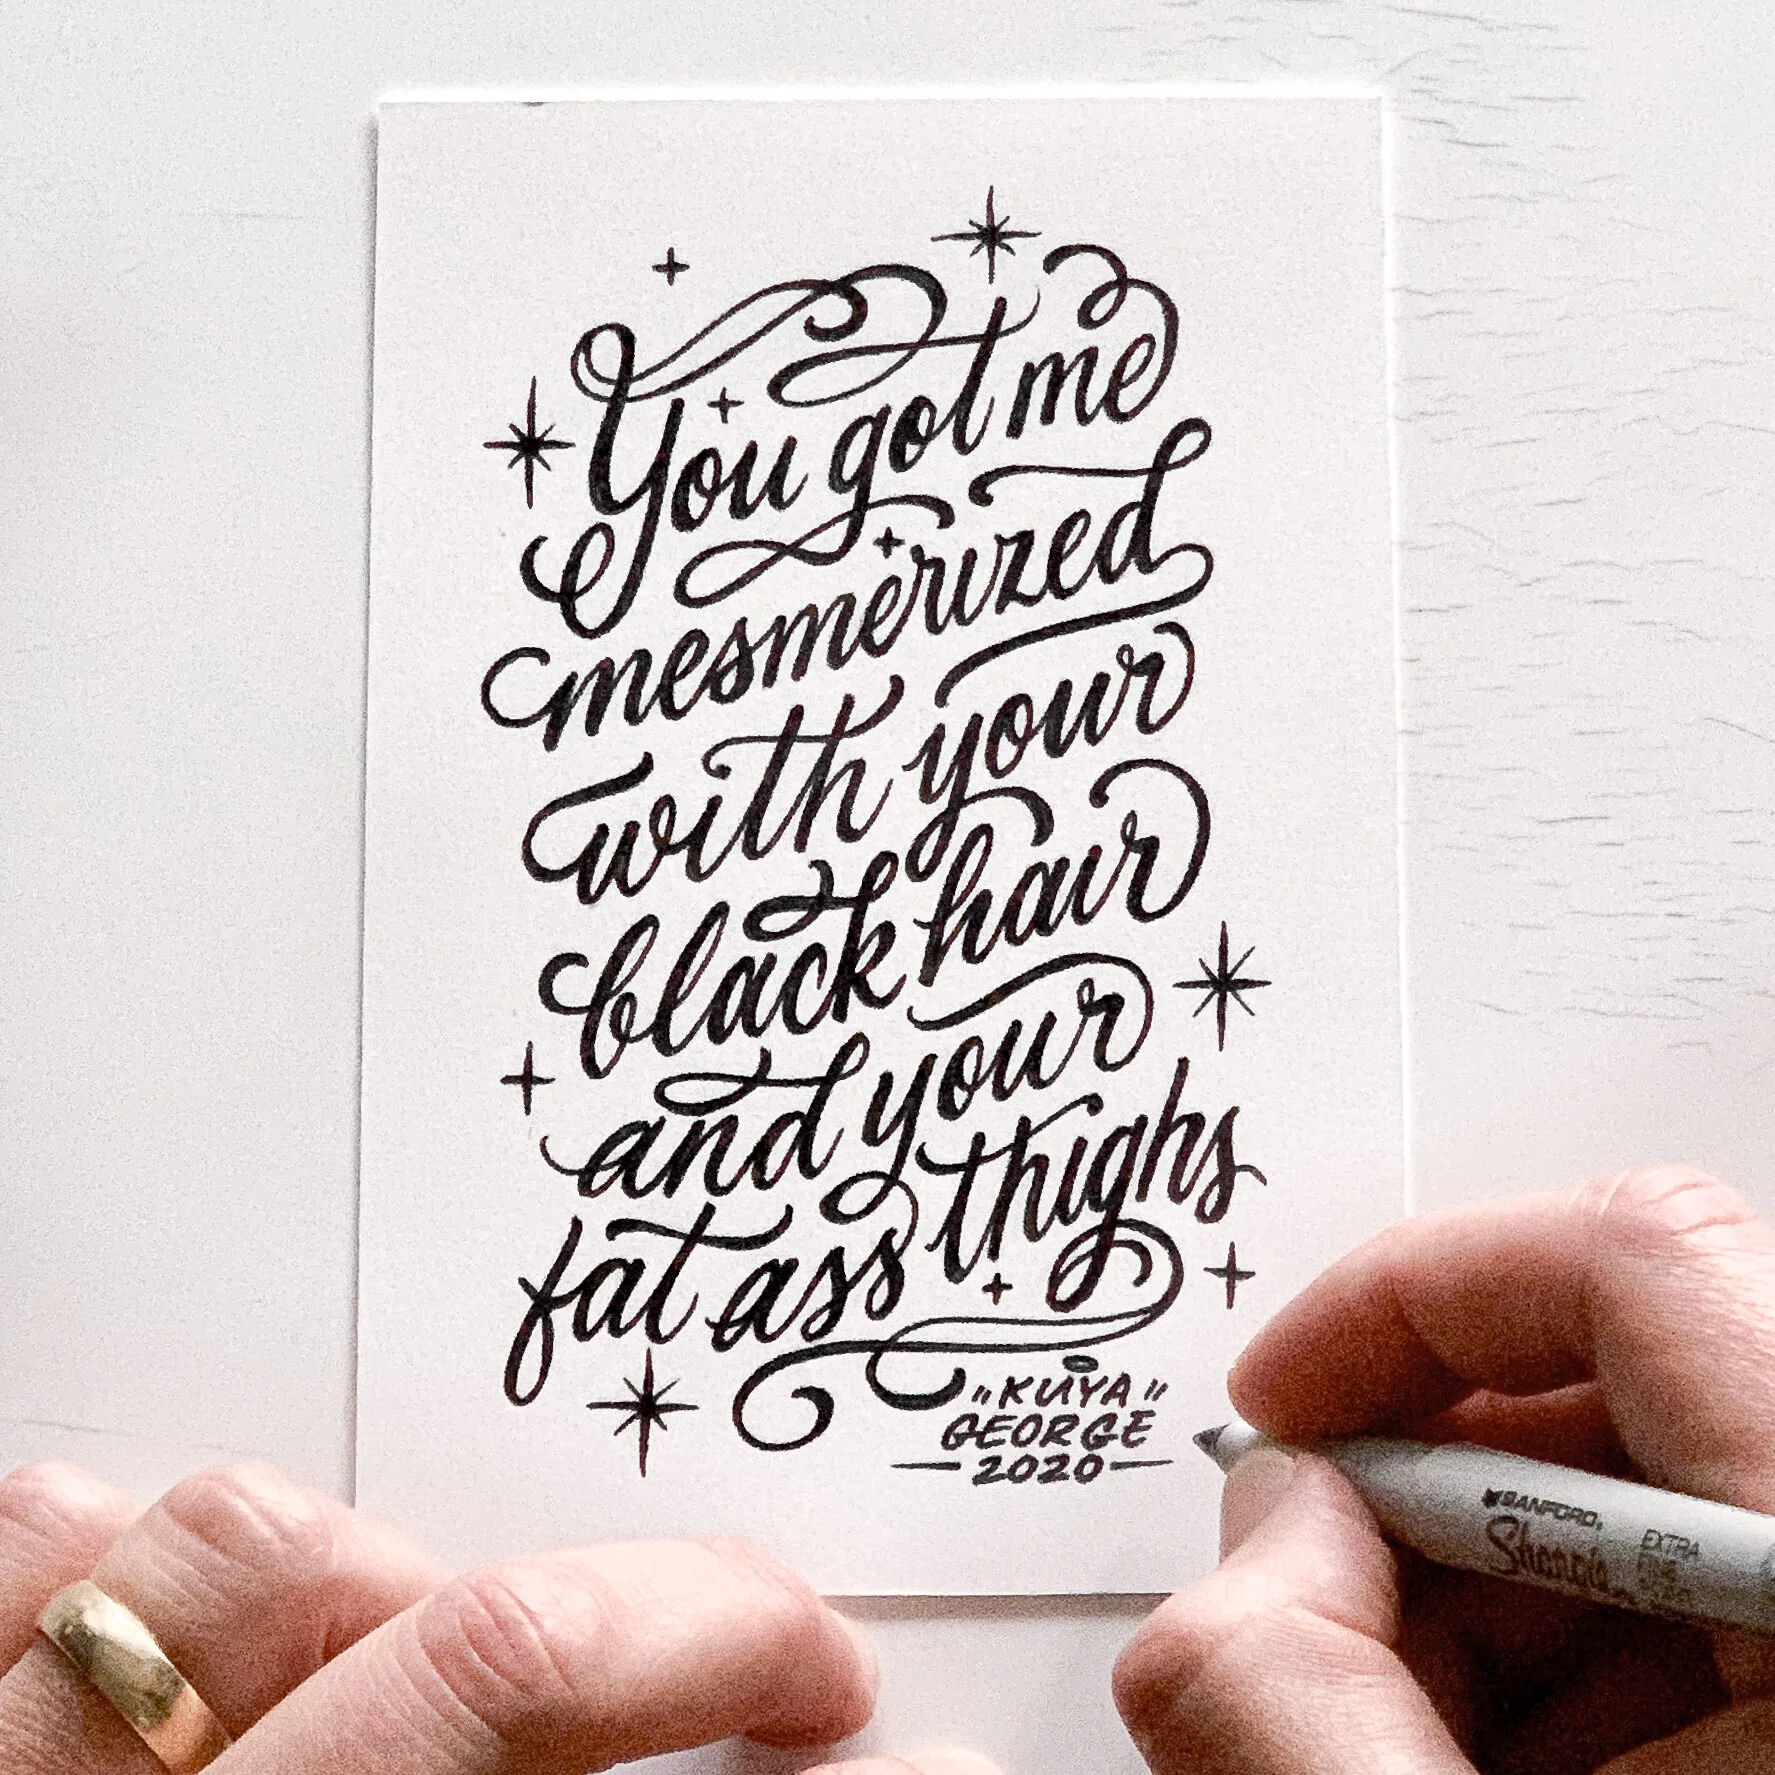 You got me
mesmerized
with your
black hair
and your
fat ass thighs
"KUYA"
GEORGE
2020
SANFORD.
Sharpie
EXTRA